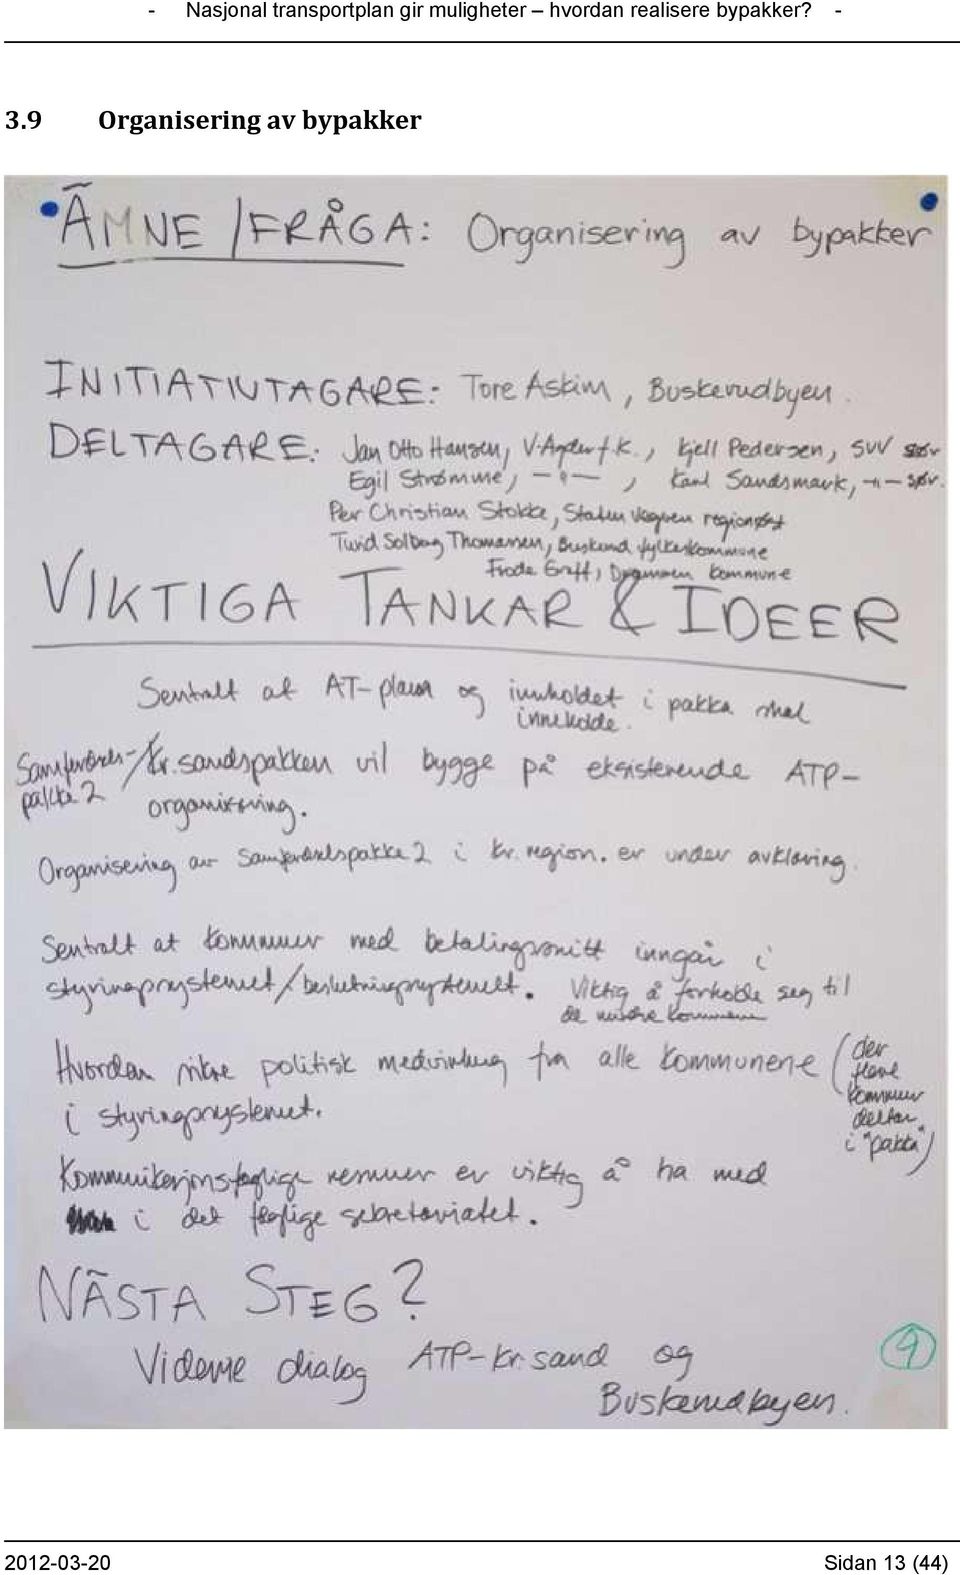 - Nasjonal transportplan gir muligheter – hvordan realisere bypakker? -
3.9 Organisering av bypakker
ÄMNE / FRÅGA: Organisering av bypakker
INITIATIVTAGARE: Tore Askim, Buskerudbyen.
DELTAGARE: Jan Otto Hansen, V-Agder f.k., Kjell Pedersen, SVV sør
Egil Strømme, —"—, Karl Sandsmark, —"— sør.
Per Christian Stokke, Staten Vegvesen region øst
Turid Solberg Thomassen, Buskerud fylkeskommune
Frode Graff, Drammen kommune
VIKTIGA TANKAR & IDEER
Sentralt at AT-plan og innholdet i pakka skal
inneholde.
Samferdsels-/Kr.sandspakken vil bygge på eksisterende ATP-
pakke 2 organisering.
Organisering av Samferdselspakke 2 i Kr. region. er under avklaring.
Sentralt at kommuner med betalingssnitt inngår i
styringssystemet/beslutningssystemet. Viktig å forholde seg til
de mindre kommunene
Hvordan sikre politisk medvirkning fra alle kommunene (der
flere
i styringssystemet. kommuner
deltar
i "pakka")
Kommunikasjonsfaglige ressurser er viktig å ha med
i det faglige sekretariatet.
NÄSTA STEG?
Videre dialog ATP-Kr.sand og
Buskerudbyen.
9
2012-03-20 Sidan 13 (44)